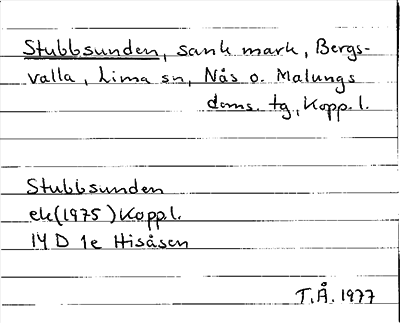 Stubbsunden, sank mark, Bergs-
valla, Lima sn, Nås o. Malungs
doms. tg., Kopp. l.
Stubbsunden
ek (1975) Kopp l.
14 D 1e Hisåsen
T.Å. 1977